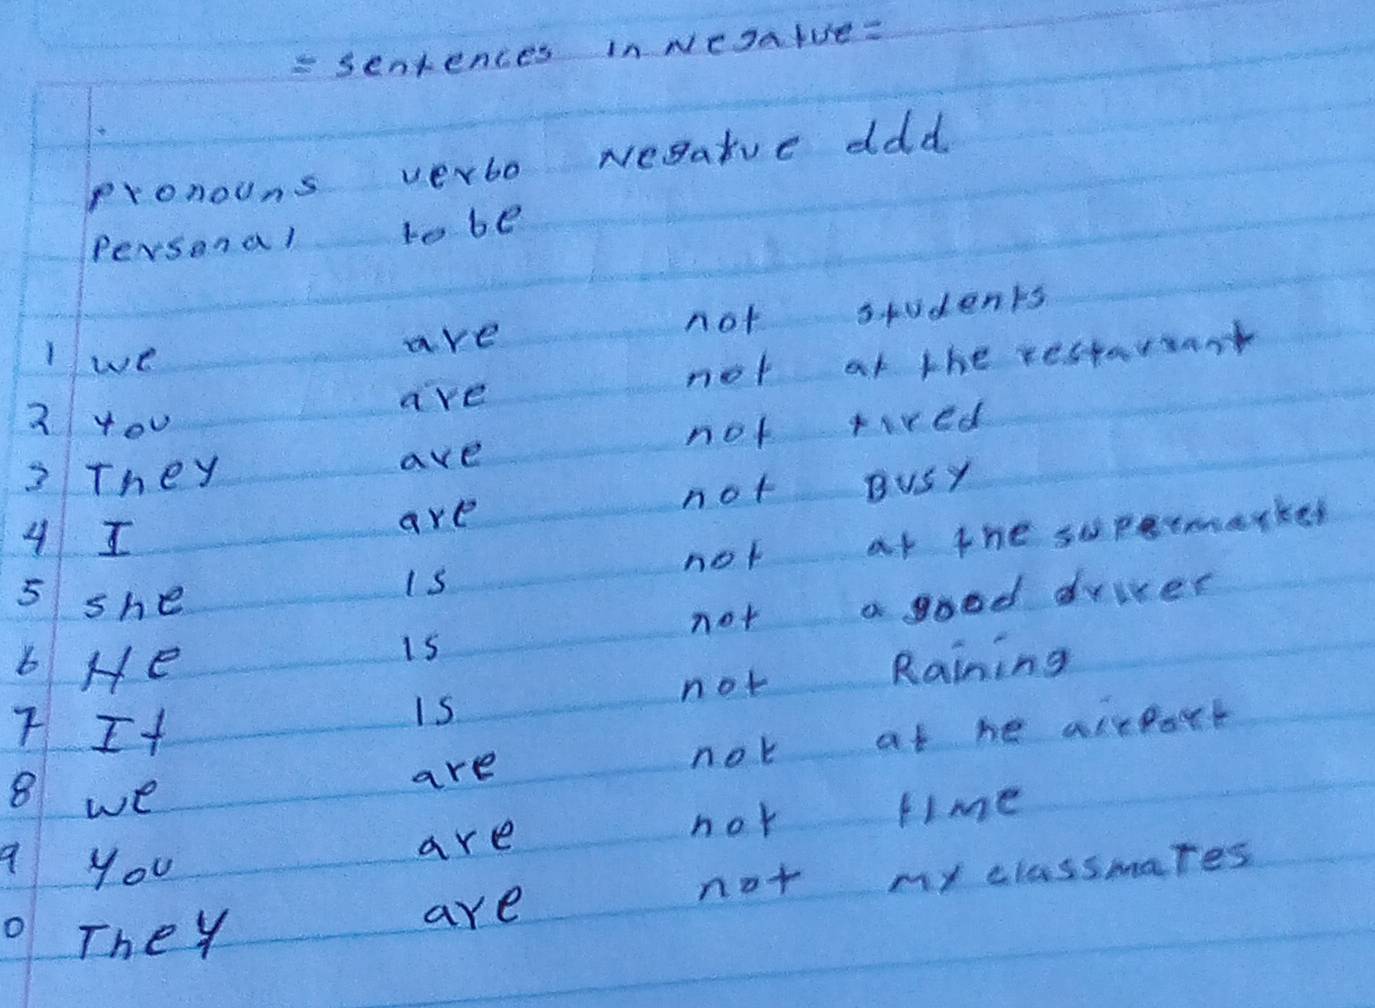 = sentences in Negatve =
pronouns verbo Negatve ddd
Personal to be
1 we are not students
2 you are not at the restaurant
3 They are not tired
4 I are not Busy
5 she is not at the supermarket
6 He is not a good driver
7 It is not Raining
8 we are not at he airport
9 you are not time
0 They are not my classmates